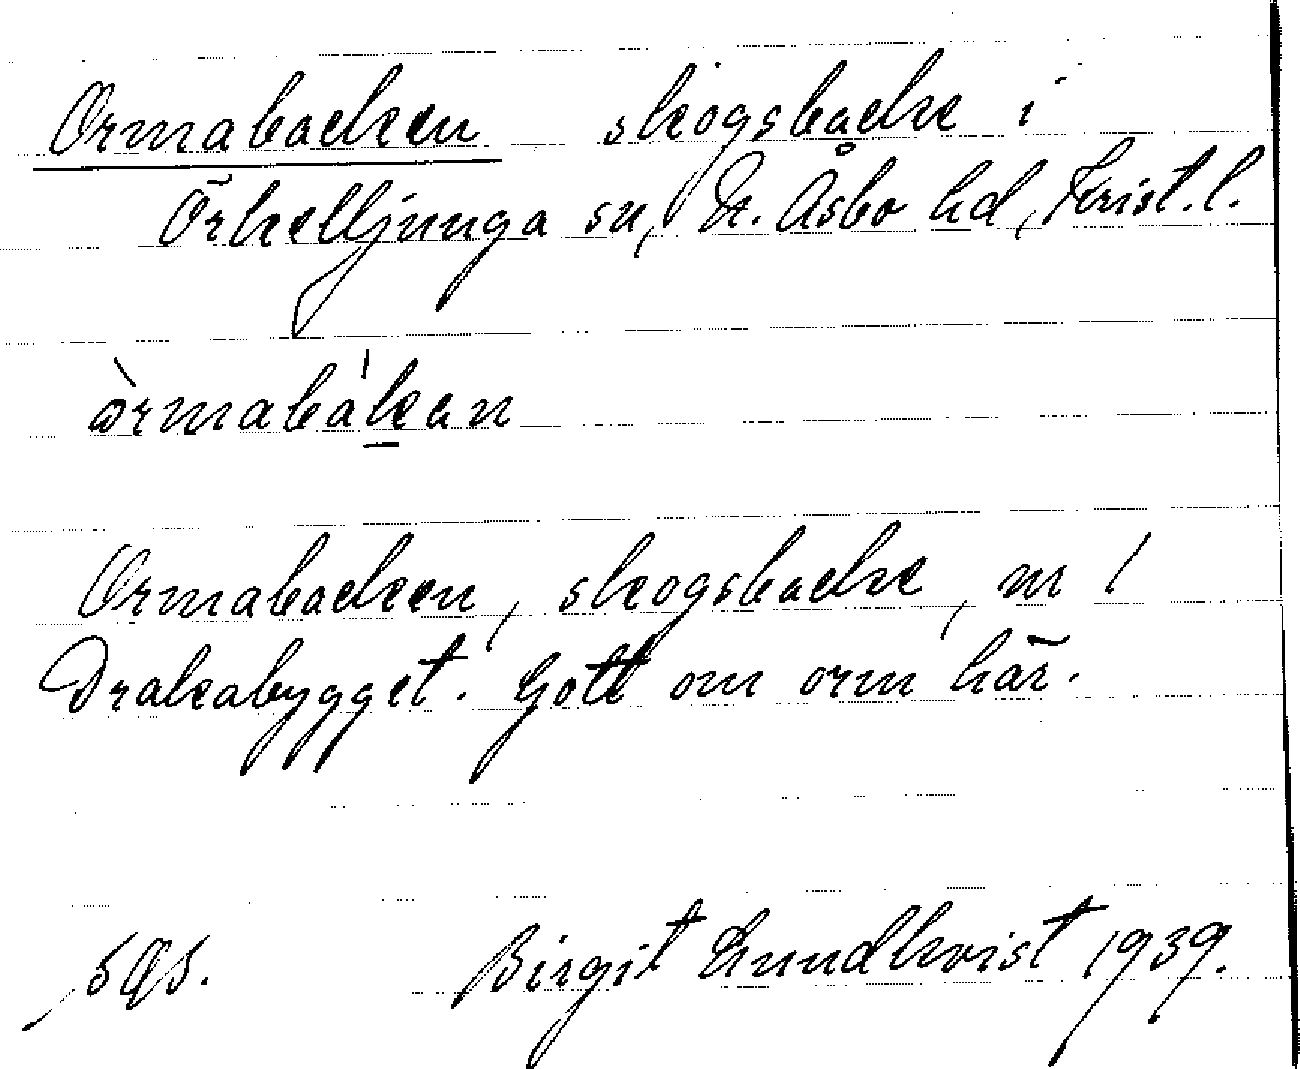 Ormabacken skogsbacke i
Örkelljunga sn, N. Åsbo hd, Krist. l.
òrmabàkan
Ormabacken, skogsbacke, m /
Drakabygget. Gott om orm här.
Birgit Lundkvist 1939.